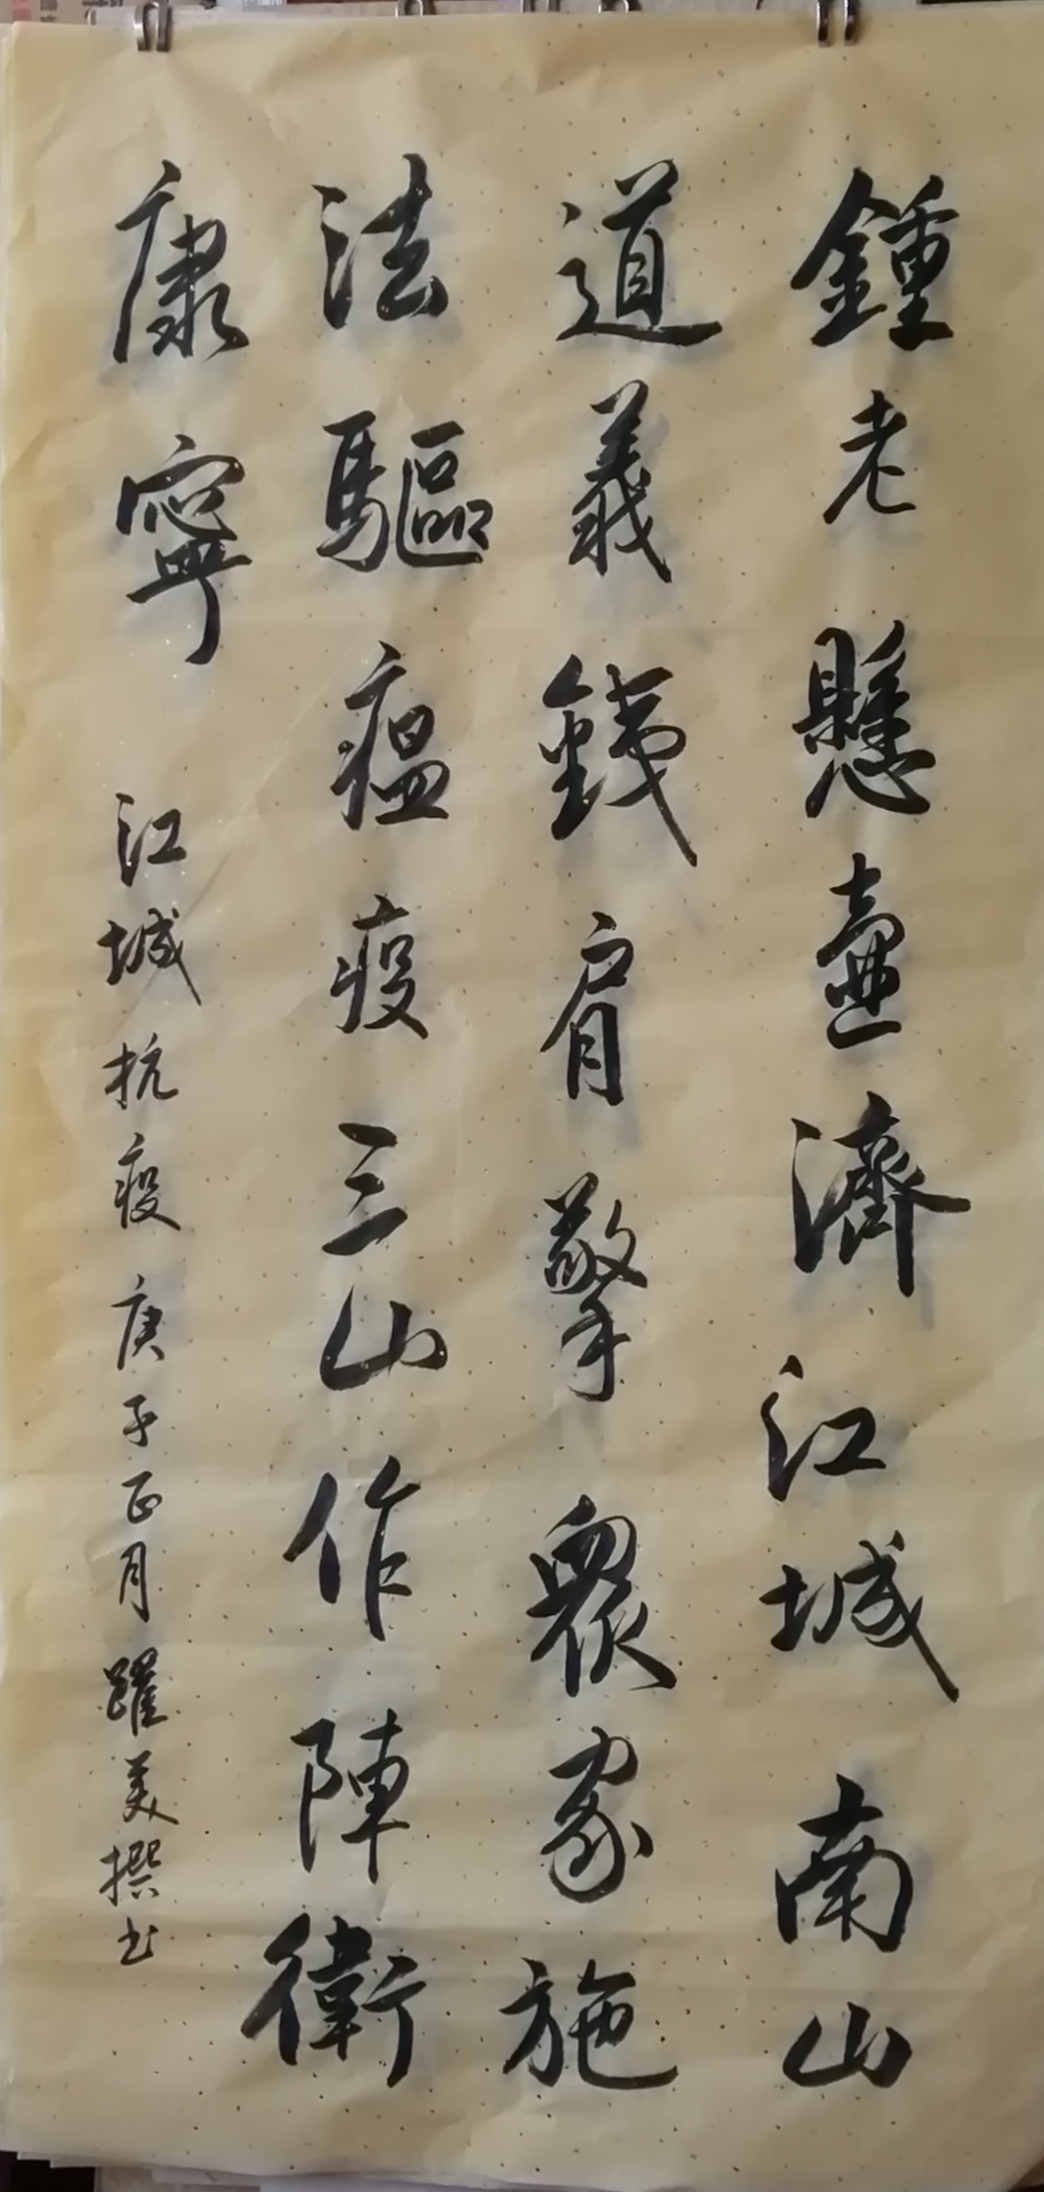 鍾老懸壺濟江城南山
道義錢肩擎眾家施
法驅瘟疫三山作陣衛
康寧 江城抗疫庚子正月躍美撰书